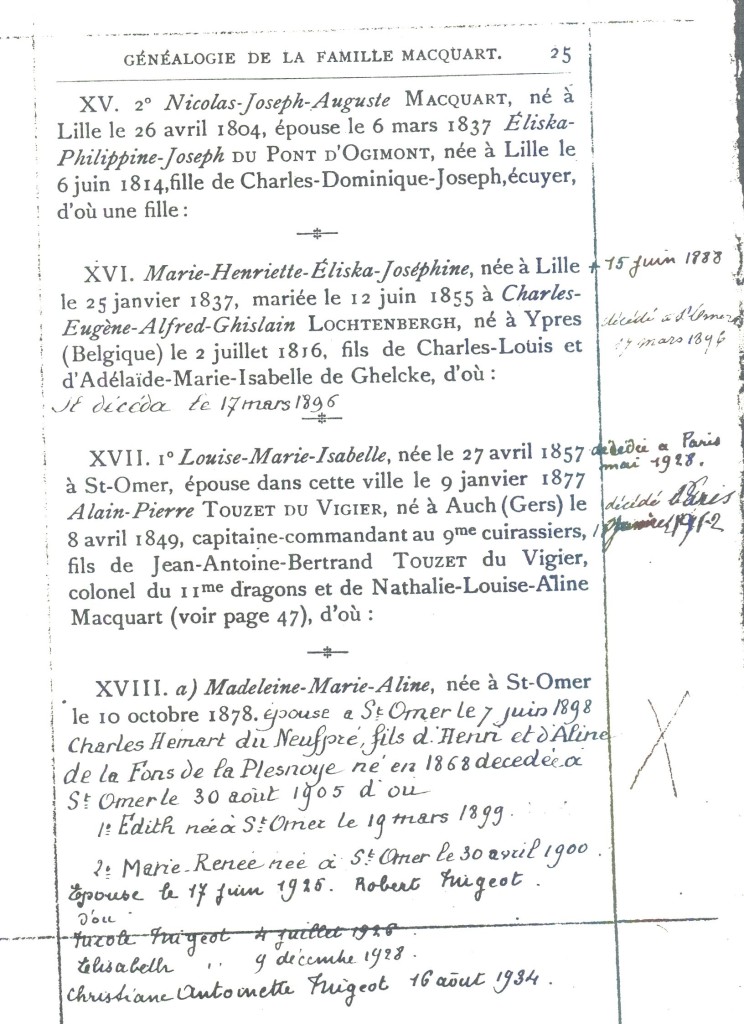 GÉNÉALOGIE DE LA FAMILLE MACQUART. 25
XV. 2º Nicolas-Joseph-Auguste MACQUART, né à
Lille le 26 avril 1804, épouse le 6 mars 1837 Éliska-
Philippine-Joseph DU PONT D'OGIMONT, née à Lille le
6 juin 1814, fille de Charles-Dominique-Joseph, écuyer,
d'où une fille :
XVI. Marie-Henriette-Éliska-Joséphine, née à Lille
+ 15 juin 1888
le 25 janvier 1837, mariée le 12 juin 1855 à Charles-
Eugène-Alfred-Ghislain LOCHTENBERGH, né à Ypres
décédé à St Omer
(Belgique) le 2 juillet 1816, fils de Charles-Louis et
17 mars 1896
d'Adélaïde-Marie-Isabelle de Ghelcke, d'où :
décéda le 17 mars 1896
XVII. 1º Louise-Marie-Isabelle, née le 27 avril 1857
décédée a Paris
mai 1928.
à St-Omer, épouse dans cette ville le 9 janvier 1877
Alain-Pierre TOUZET DU VIGIER, né à Auch (Gers) le
décédé Paris
8 avril 1849, capitaine-commandant au 9me cuirassiers,
fils de Jean-Antoine-Bertrand TOUZET du Vigier,
colonel du 11me dragons et de Nathalie-Louise-Aline
Macquart (voir page 47), d'où :
XVIII. a) Madeleine-Marie-Aline, née à St-Omer
le 10 octobre 1878. épouse a St Omer le 7 juin 1898
Charles Hemart du Neufpré, fils d'Henri et d'Aline
de la Fons de la Plesnoye né en 1868 decedée a
St Omer le 30 août 1905 d'ou
1º Edith née à St Omer le 19 mars 1899.
2º Marie-Renée née à St Omer le 30 avril 1900.
Epouse le 17 juin 1925. Robert Frigeot.
d'ou
Nicole Frigeot 4 juillet 1926
Elisabeth " 9 décembre 1928.
Christiane Antoinette Frigeot 16 août 1934.